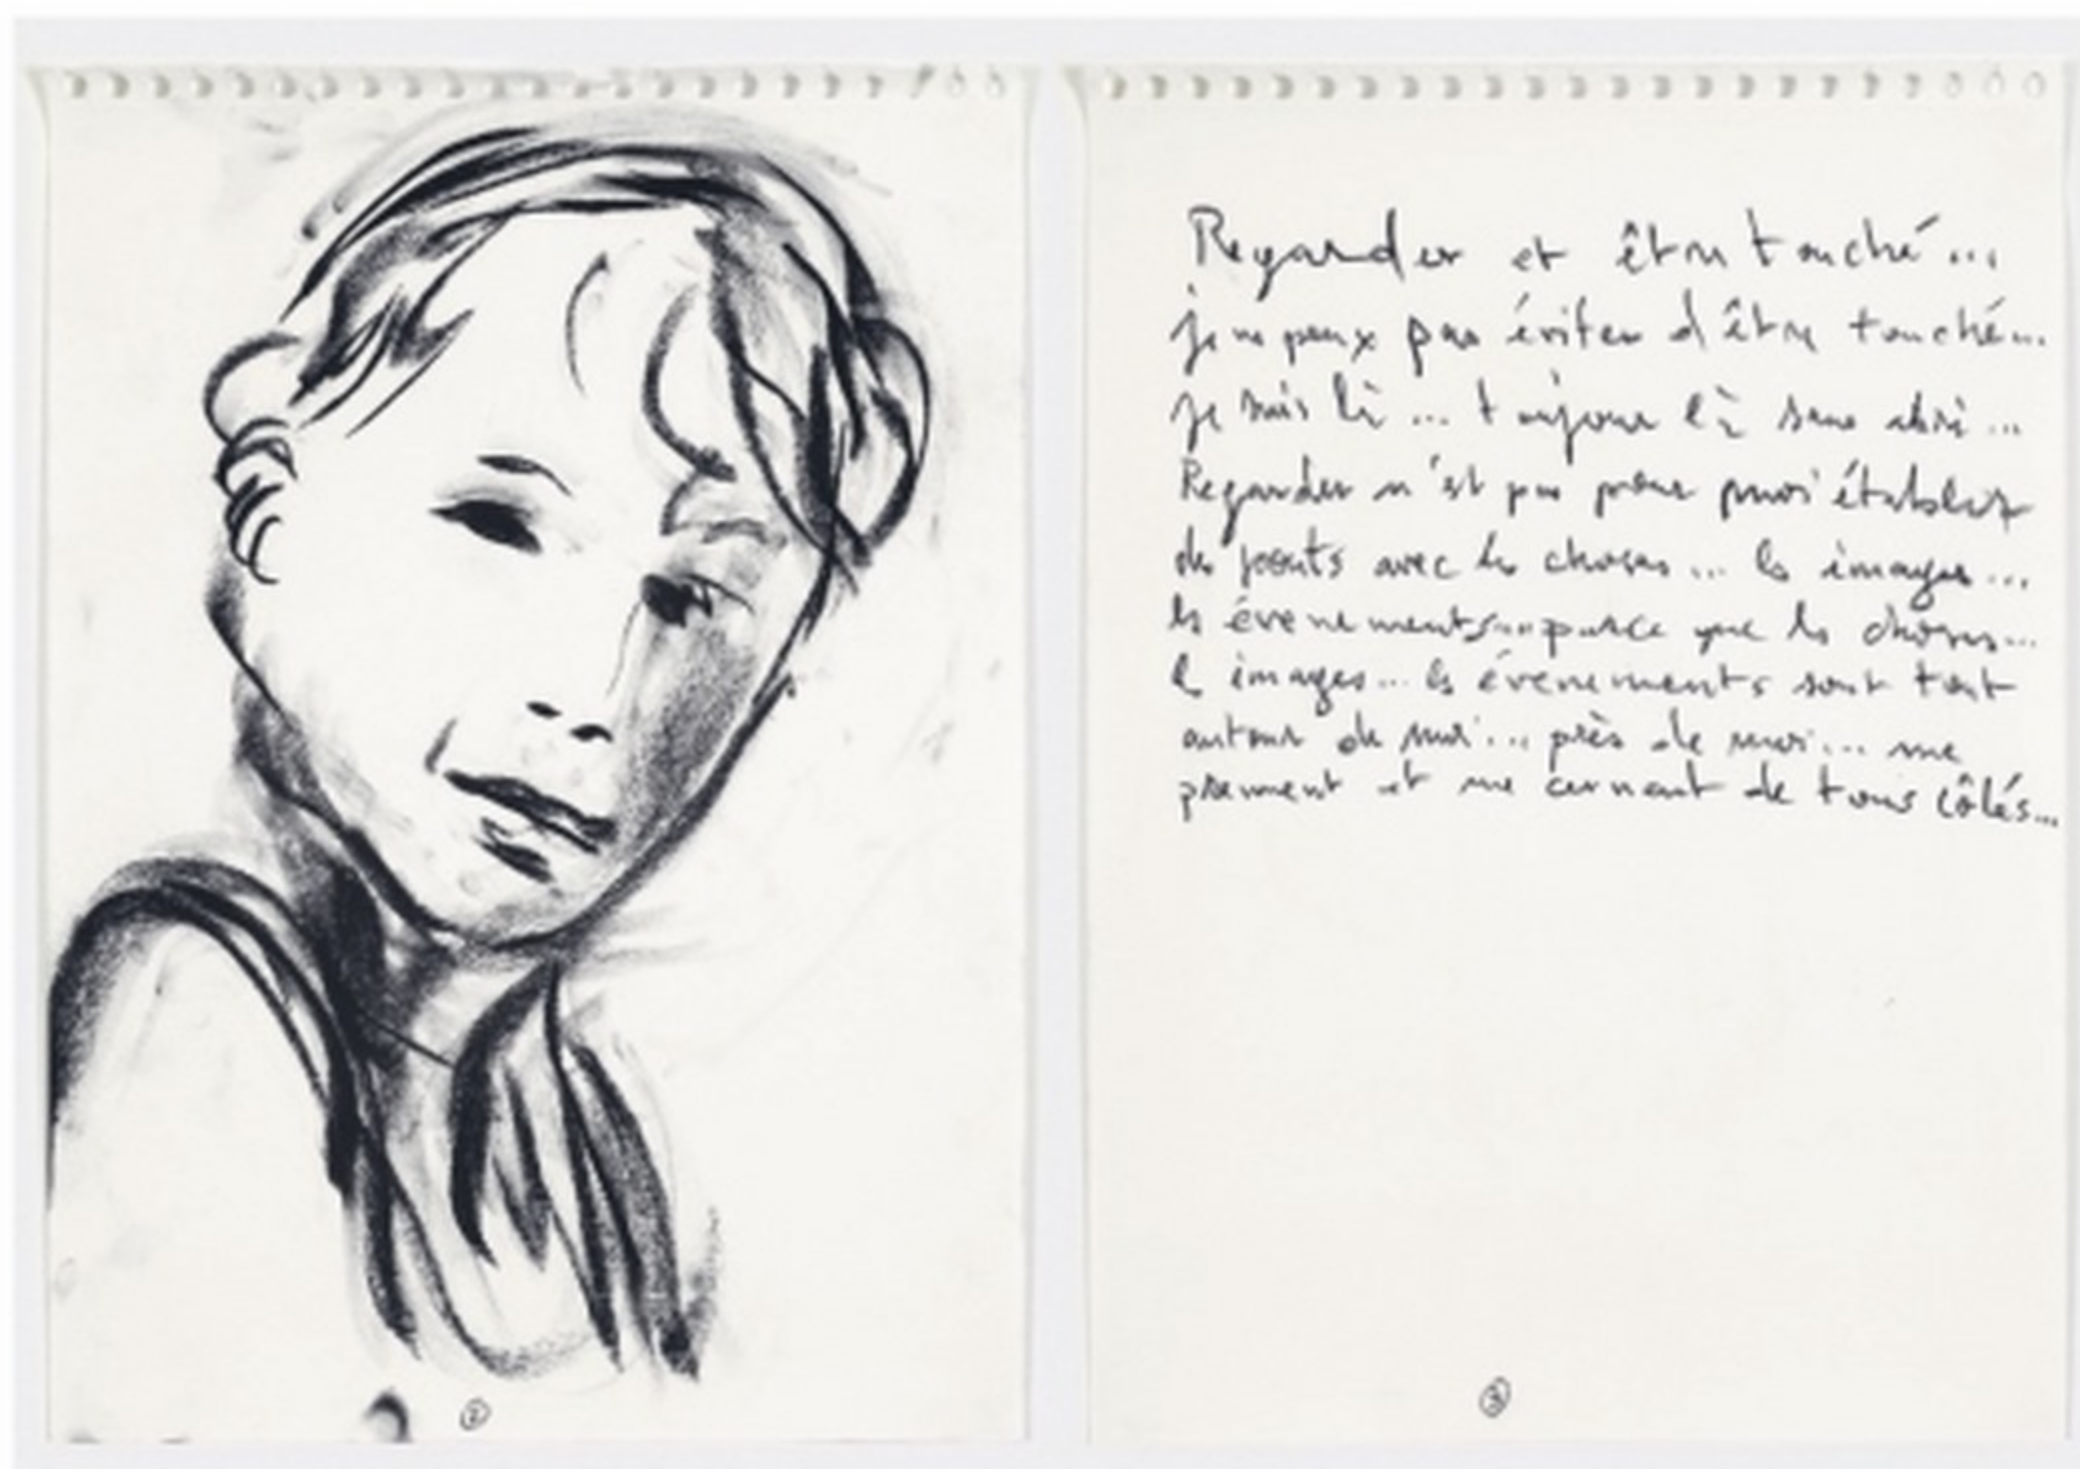 Regarder et être touché...
je ne peux pas éviter d'être touché...
je suis là... toujours là sans abri...
Regarder n'est pas pour moi établir
des ponts avec les choses... les images...
les évenements... parce que les choses...
les images... les évenements sont tout
autour de moi... près de moi... me
prennent et me cernent de tous côtés...
②
③